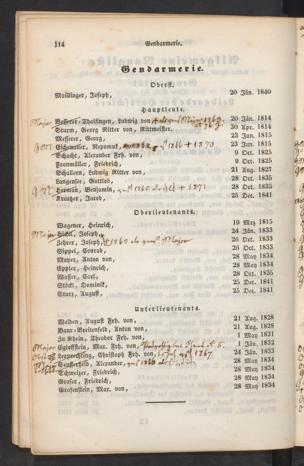 114
Gendarmerie.
Gendarmerie.
Oberst.
Maillinger, Joseph, 20 Jän. 1840
Hauptleute.
Major Besserer-Thalfingen, Ludwig von, 20 Jän. 1814
Sturm, Georg Ritter von, Rittmeister. 30 Apr. 1814
Messerer, Georg, 22 Jun. 1815
Nepomuk, 1866 + 1870 23 Jun. 1815
Schacht, Alexander Frh. von, 9 Oct. 1825
Frommüller, Friedrich, 9 Oct. 1825
Schallern, Ludwig Ritter von, 21 Aug. 1827
Gottlob, 28 Oct. 1835
Benjamin, + 1871 28 Oct. 1835
Kreuzer, Jacob, 25 Dec. 1841
Oberlieutenants.
Wagener, Heinrich, 19 Mrz 1815
Major Joseph 24 Jän. 1833
Jehrer, Joseph, Major 26 Oct. 1833
Sippel, Conrad, 26 Oct. 1833
Mayer, Anton von 28 May 1834
Heinrich, 28 May 1834
Carl, 28 Oct. 1835
Stöckl, Dominik, 25 Dec. 1841
Sturz, August, 25 Dec. 1841
Unterlieutenants.
Welden, August Frh. von, 21 Aug. 1828
Baur-Breitenfeld, Anton von, 21 Aug. 1828
Zu Rhein, Theodor Frh. von, 1 May 1831
Major Egloffstein, Max. Frh. von, 1 Jän. 1832
Christoph Frh. von, 1867. 24 Jän. 1833
Alexander, 28 May 1834
Schweizer, Friedrich, 28 May 1834
Graser, Friedrich, 28 May 1834
Grafenstein, Max. von, 28 May 1834